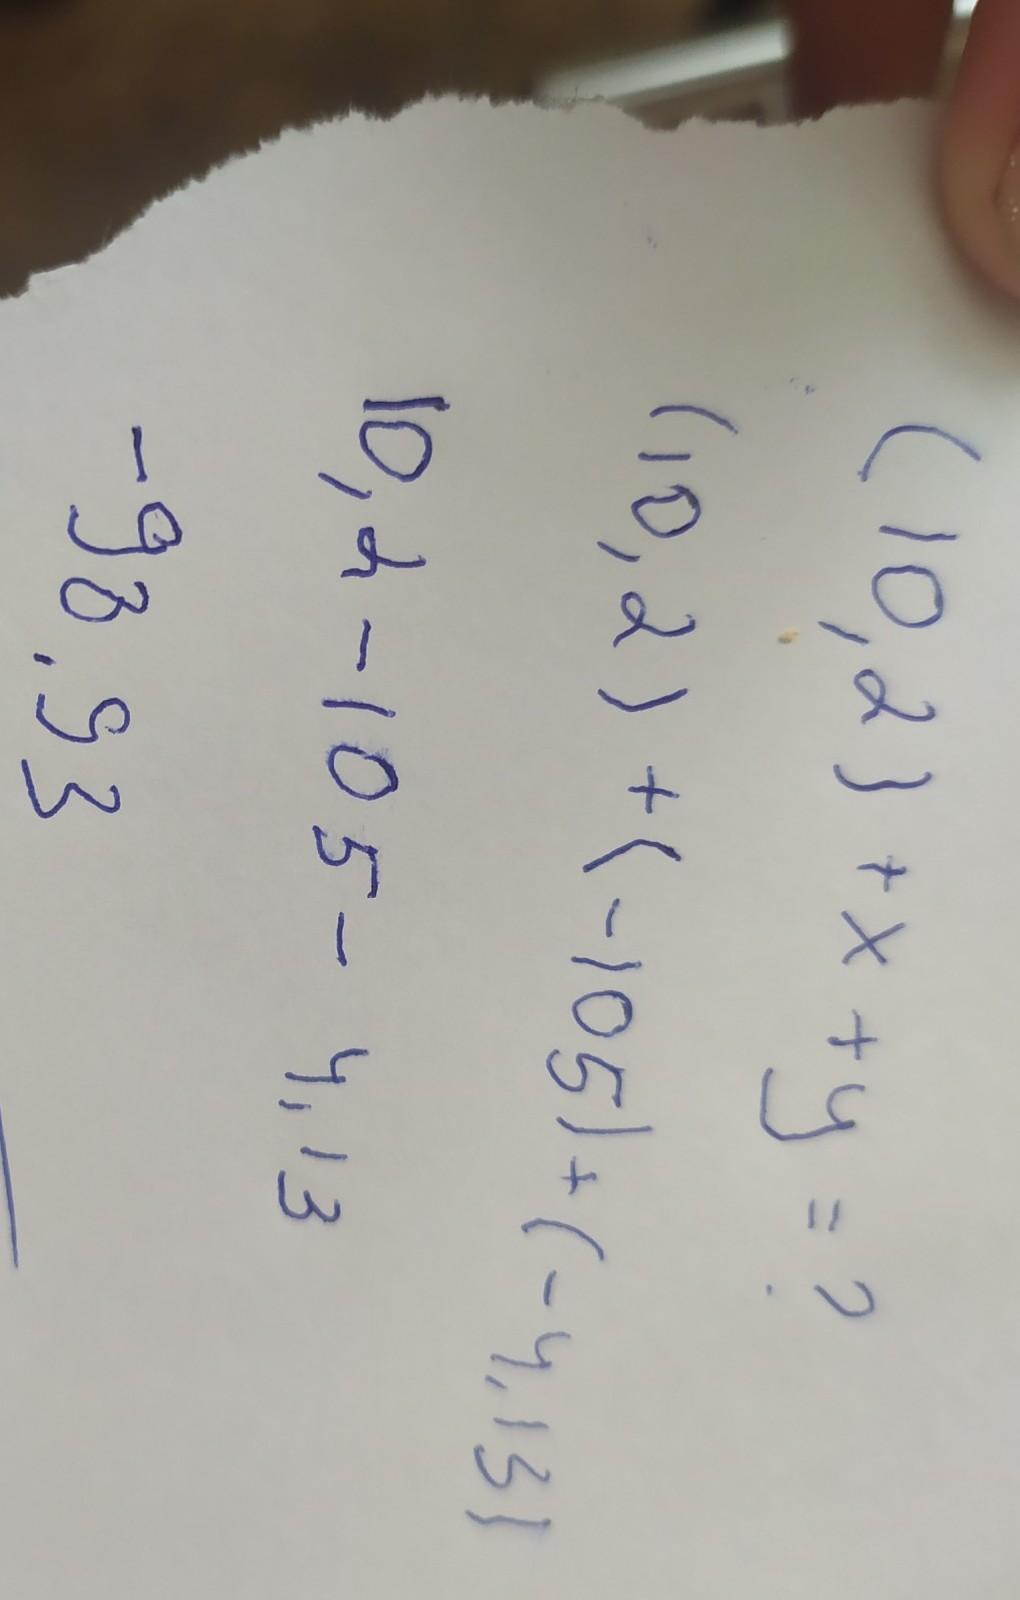 (10,2) + x + y = ?
(10,2) + (-105) + (-4,13)
10,2 - 105 - 4,13
-98,93